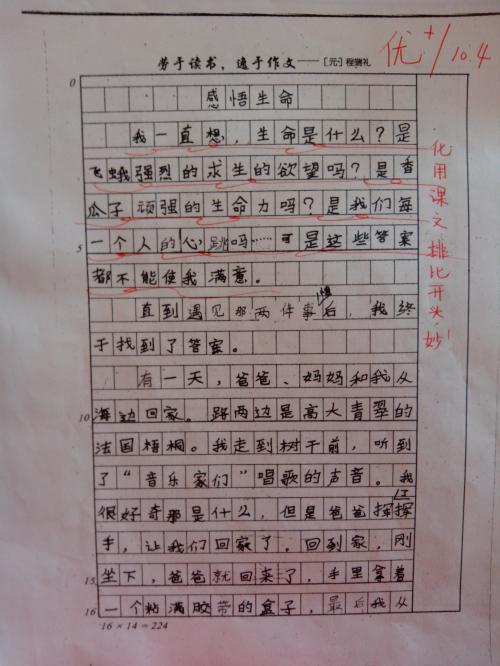 劳于读书，逸于作文——［元］程端礼
优+/10.4
0
感悟生命
我一直想，生命是什么？是
飞蛾强烈的求生的欲望吗？是香
瓜子顽强的生命力吗？是我们每
5 一个人的心跳吗……可是这些答案
都不能使我满意。
直到遇见那两件事后，我终
于找到了答案。
有一天，爸爸、妈妈和我从
10 海边回家。路两边是高大青翠的
法国梧桐。我走到树干前，听到
了“音乐家们”唱歌的声音。我
很好奇那是什么，但是爸爸挥挥
手，让我们回家了。回到家，刚
15 坐下，爸爸就回来了，手里拿着
16 一个粘满胶带的盒子，最后我从
16×14=224
化用课文排比开头，妙！